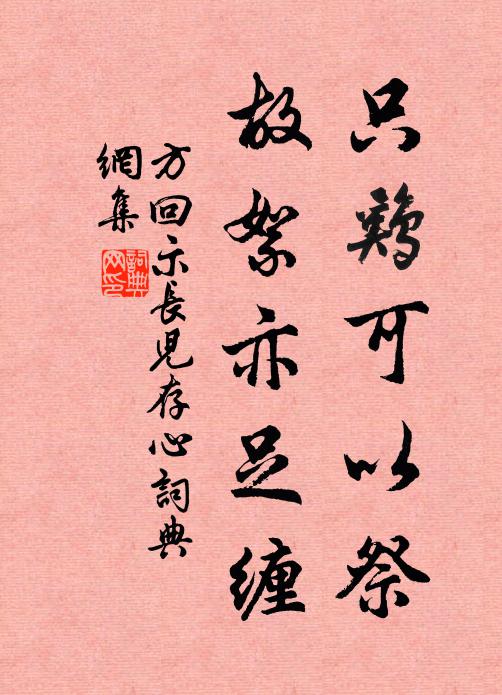 只鷄可以祭
故絮亦足纏
方回示長兒存心詞典
網集
詞典
网印